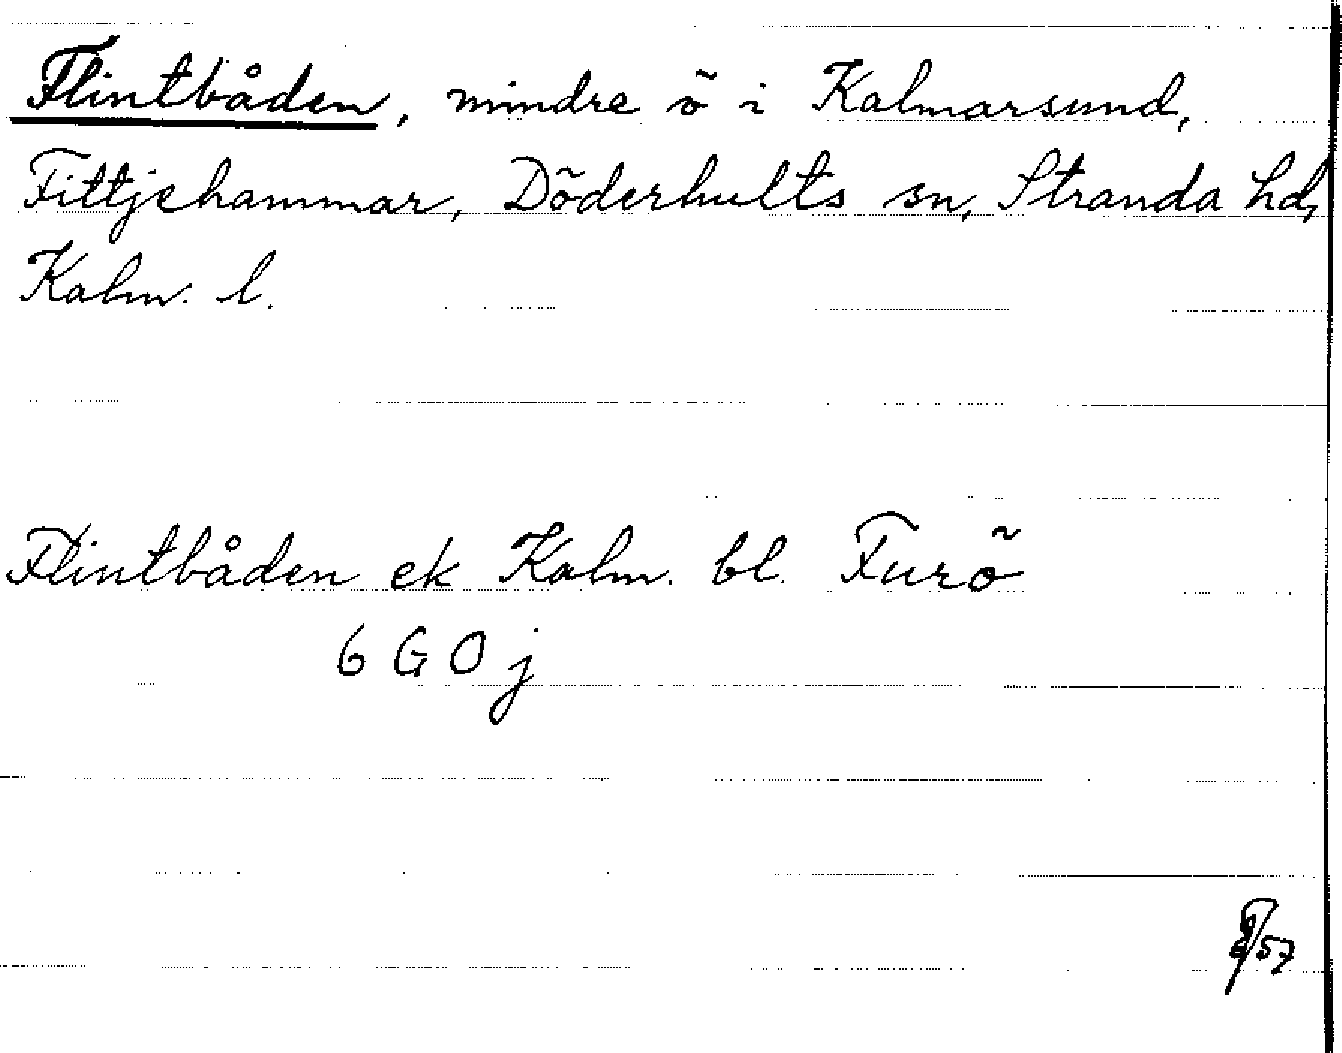 Flintbåden, mindre ö i Kalmarsund,
Fittjehammar, Döderhults sn, Stranda hd,
Kalm. l.
Flintbåden ek Kalm. bl. Furö
6 G 0 j
/57